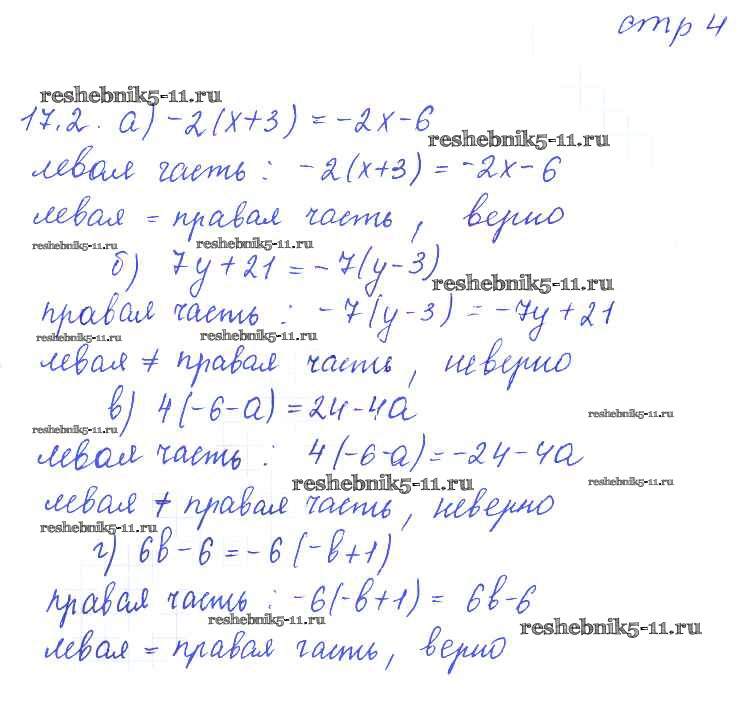 стр 4
reshebnik5-11.ru
17.2. а) -2(x+3) = -2x-6
reshebnik5-11.ru
левая часть : -2(x+3) = -2x-6
левая = правая часть, верно
reshebnik5-11.ru reshebnik5-11.ru
б) 7y+21 = -7(y-3)
reshebnik5-11.ru
правая часть : -7(y-3) = -7y+21
reshebnik5-11.ru reshebnik5-11.ru
левая ≠ правая часть, неверно
в) 4(-6-a) = 24-4a
reshebnik5-11.ru
reshebnik5-11.ru
левая часть : 4(-6-a) = -24-4a
reshebnik5-11.ru reshebnik5-11.ru
левая ≠ правая часть, неверно
reshebnik5-11.ru
г) 6b-6 = -6(-b+1)
правая часть : -6(-b+1) = 6b-6
reshebnik5-11.ru reshebnik5-11.ru
левая = правая часть, верно